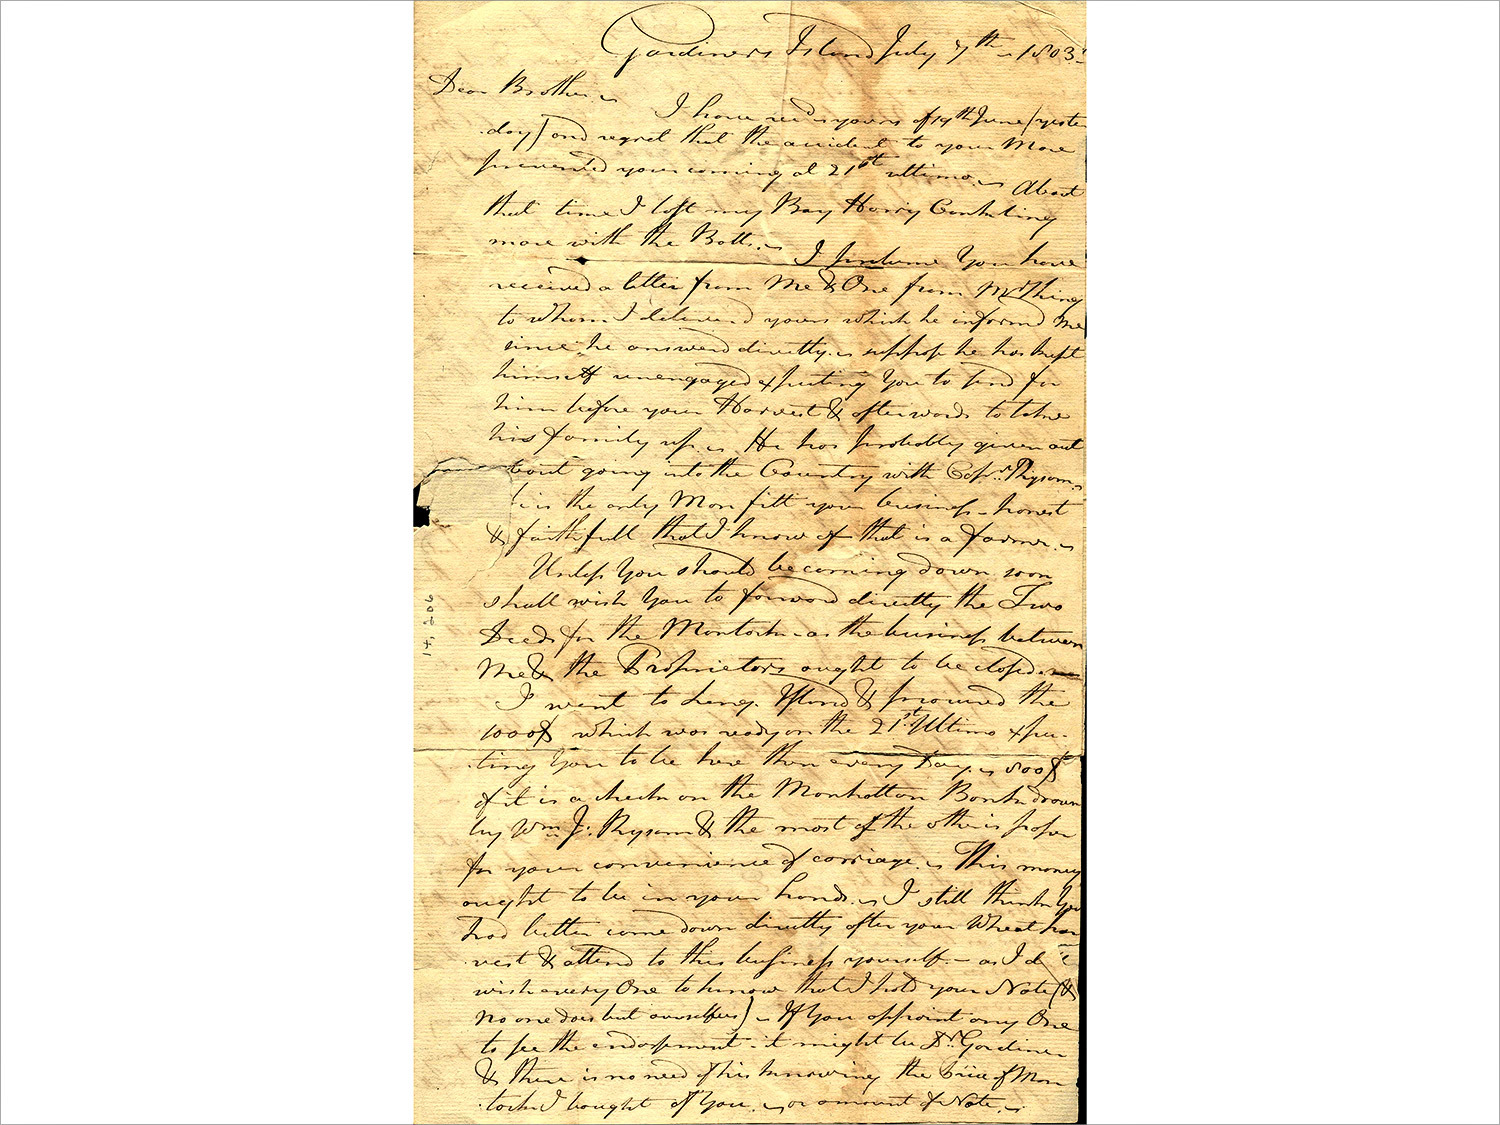 Gardiners Island July 7th 1803.
Dear Brother.
I have recd yours of 14th June (yester
day) and regret that the accident to your Mare
prevented your coming at 21st ultimo. About
that time I lost my Bay Harry Conkling
mare with the Botts. I presume You have
received a letter from Me & One from Mr
to whom I deliverd yours which he informd Me
since he answerd directly. suppose he has kept
himself unengaged expecting You to send for
him before your Harvest & afterwards to take
his family up. He has probably given out
about going into the Country with Capt. Rysam.
is the only Man fitt your business - honest
& faithfull that I know of that is a farmer.
Unless You should be coming down soon
shall wish You to forward directly the Two
Deeds for the Montock - as the business between
Me & the Proprietors ought to be closed.
I went to Long Island & procured the
1000$ which was ready on the 21st Ultimo expec-
ting You to be here then every Day. 800$
of it is a check on the Manhattan Bank drawn
by Wm J. Rysam & the most of the other is paper
for your convenience of carriage. This money
ought to be in your hands. I still think You
had better come down directly after your Wheat har
vest & attend to this business yourself. - as I do
wish every One to know that I hold your Note (&
no one does but ourselves) If You appoint any One
to see the endorsment it might be Dr. Gardiner
& there is no need of his knowing the Price of Mon
tock I bought of You. or amount of Note.
14,206